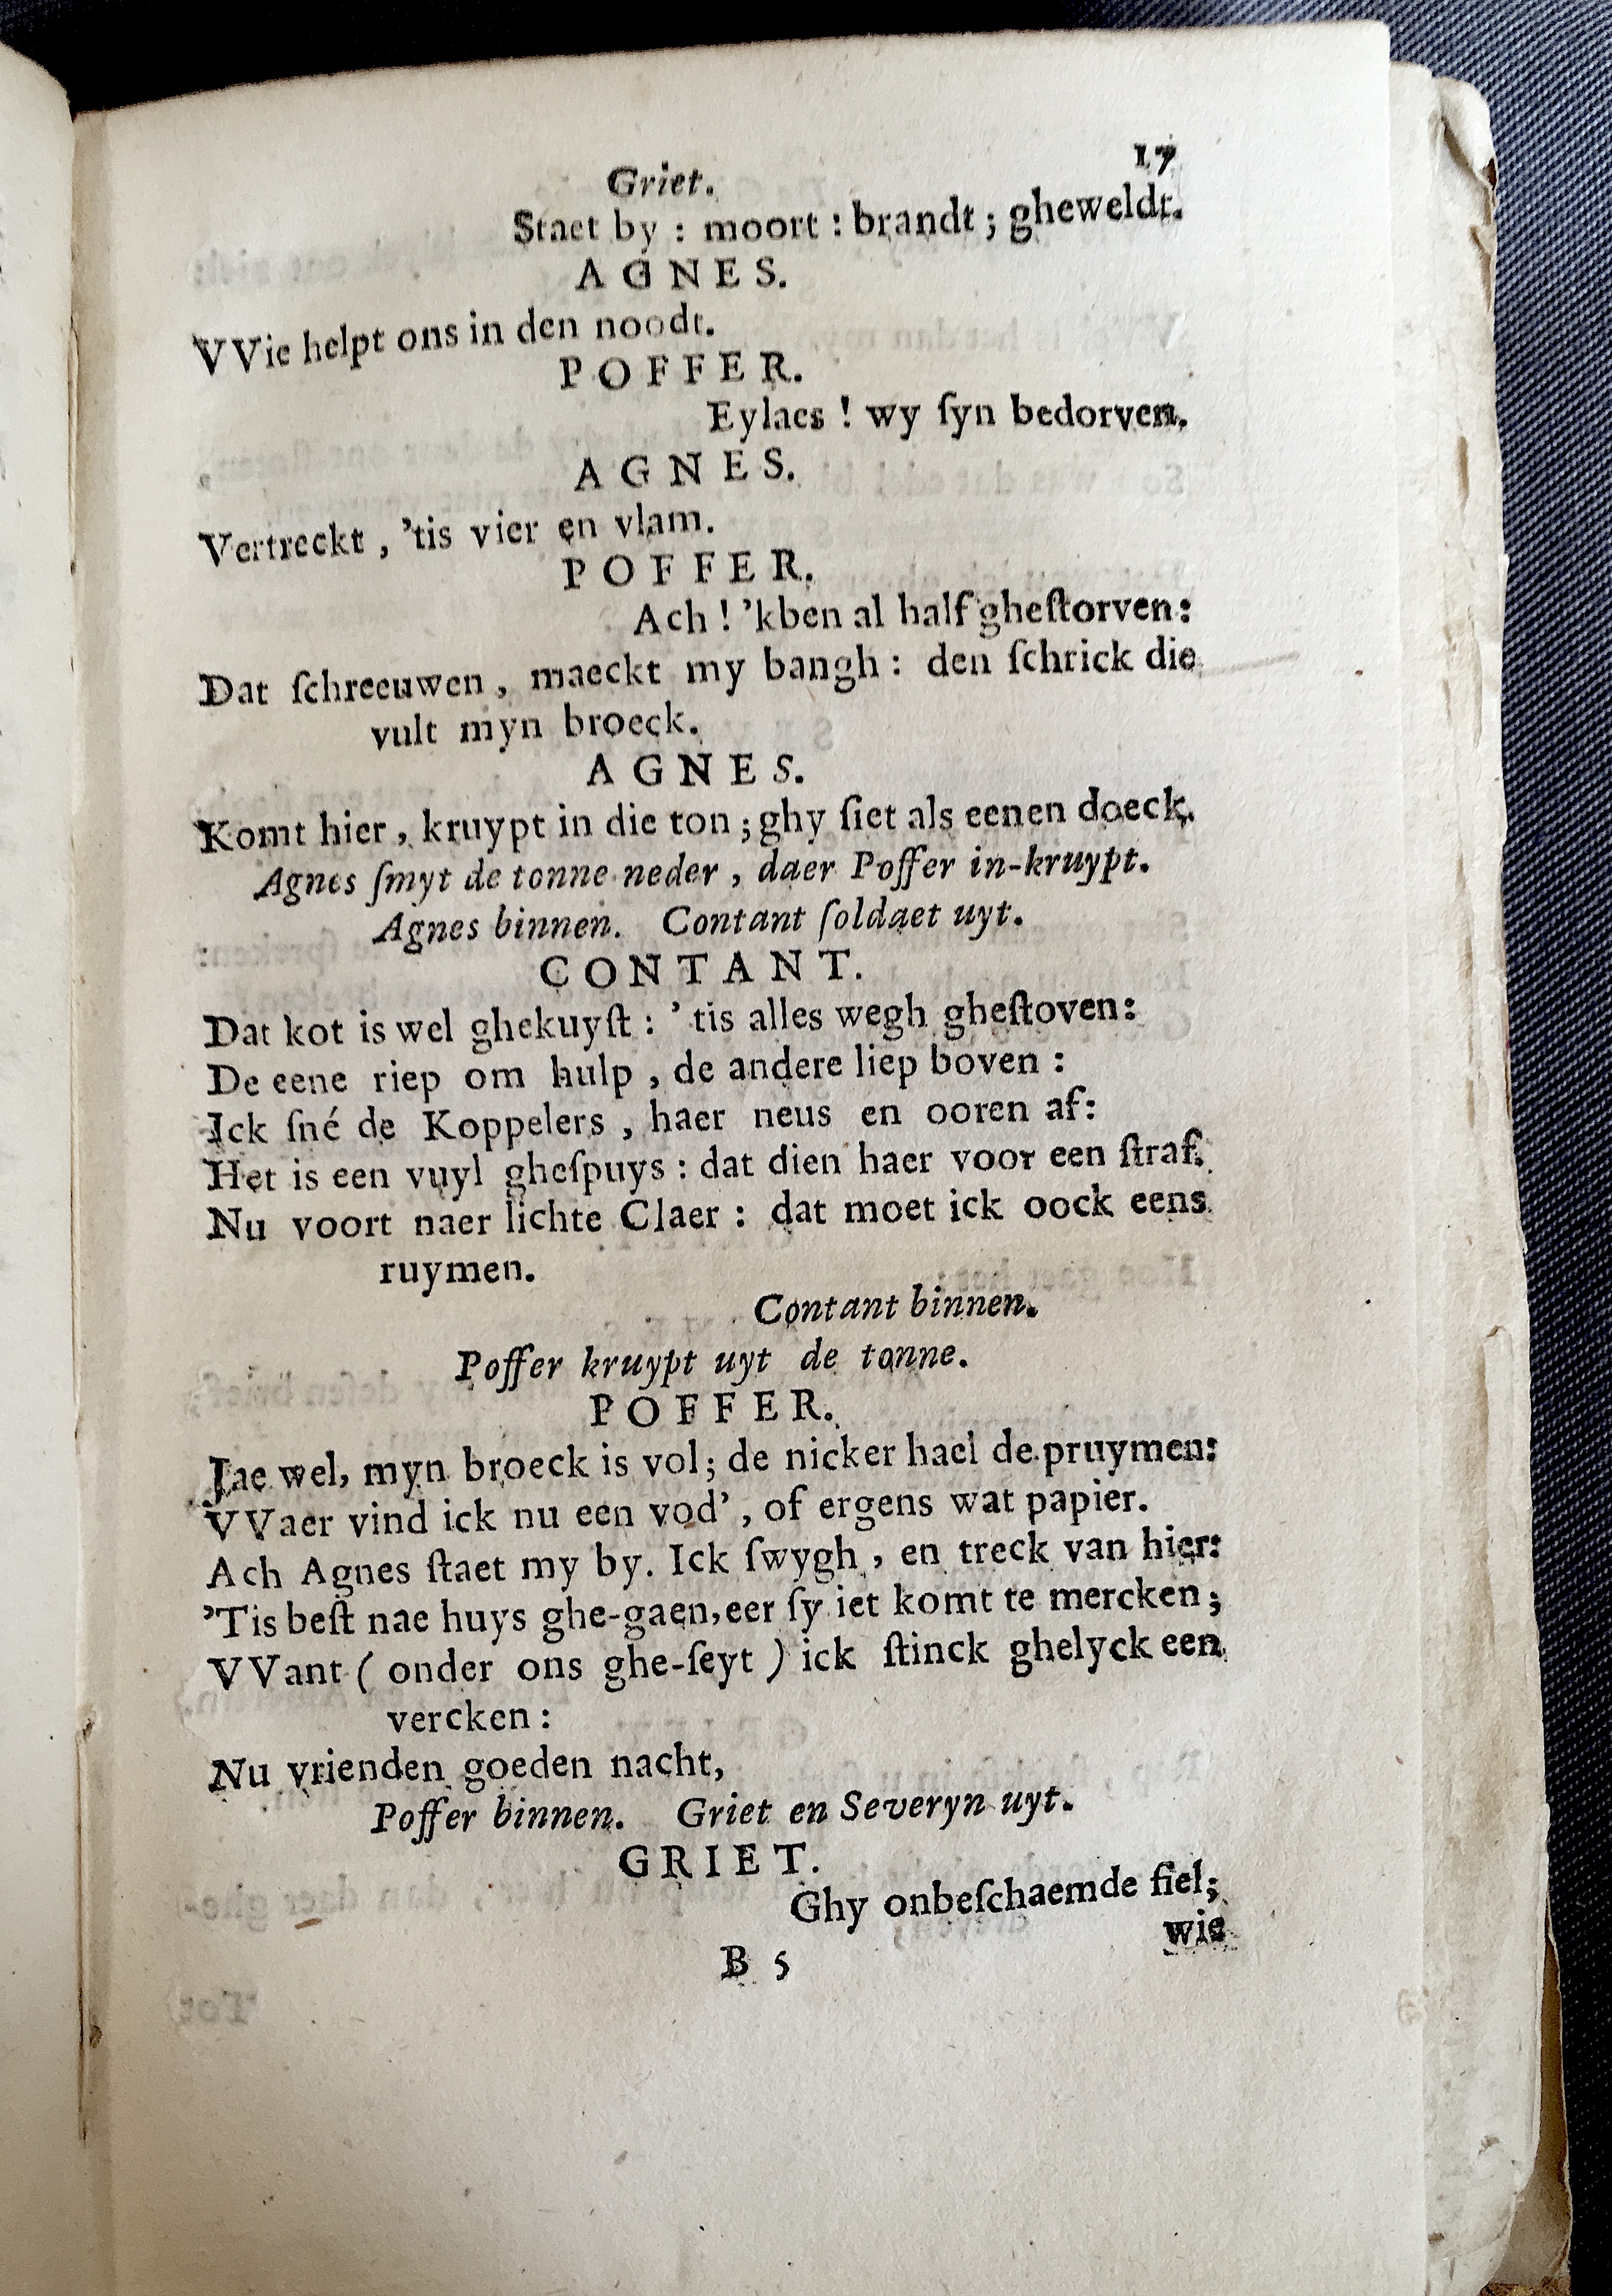 17
Griet.
Staet by : moort : brandt ; gheweldt.
AGNES.
VVie helpt ons in den noodt.
POFFER.
Eylaes ! wy ſyn bedorven.
AGNES.
Vertreckt , 'tis vier en vlam.
POFFER.
Ach ! 'kben al half gheſtorven:
Dat ſchreeuwen , maeckt my bangh : den ſchrick die
vult myn broeck.
AGNES.
Komt hier , kruypt in die ton ; ghy ſiet als eenen doeck.
Agnes ſmyt de tonne neder , daer Poffer in-kruypt.
Agnes binnen. Contant ſoldaet uyt.
CONTANT.
Dat kot is wel ghekuyſt : 'tis alles wegh gheſtoven:
De eene riep om hulp , de andere liep boven :
Ick ſné de Koppelers , haer neus en ooren af:
Het is een vuyl gheſpuys : dat dien haer voor een ſtraf.
Nu voort naer lichte Claer : dat moet ick oock eens
ruymen.
Contant binnen.
Poffer kruypt uyt de tonne.
POFFER.
Jae wel, myn broeck is vol; de nicker hael de pruymen:
VVaer vind ick nu een vod' , of ergens wat papier.
Ach Agnes ſtaet my by. Ick ſwygh , en treck van hier:
'Tis beſt nae huys ghe-gaen, eer ſy iet komt te mercken ;
VVant ( onder ons ghe-ſeyt ) ick ſtinck ghelyck een
vercken :
Nu vrienden goeden nacht,
Poffer binnen. Griet en Severyn uyt.
GRIET.
Ghy onbeſchaemde fiel;
wie
B 5